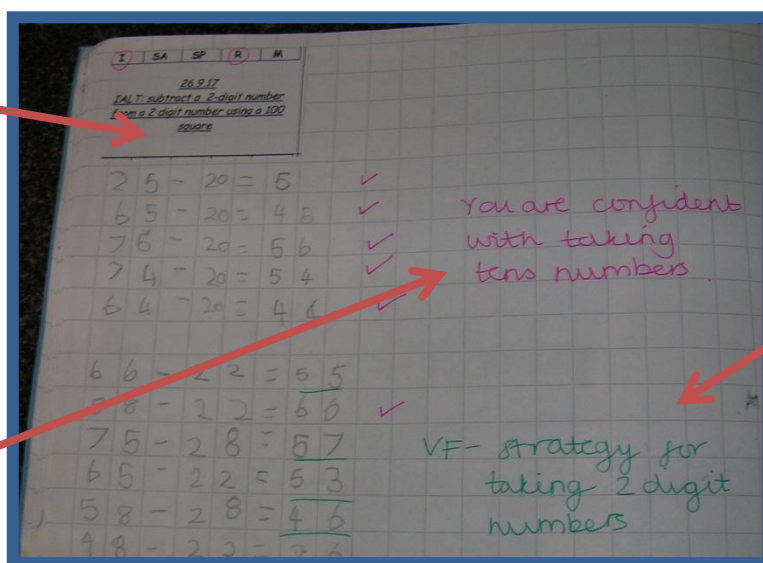 I SA SP R M
26.9.17
IALT: subtract a 2-digit number
from a 2 digit number using a 100
square
25 - 20 = 5
65 - 20 = 45
76 - 20 = 56
74 - 20 = 54
64 - 20 = 44
You are confident
with taking
tens numbers
66 - 22 = 55
58 - 22 = 66
75 - 28 = 57
65 - 22 = 53
58 - 28 = 46
48 - 22 =
VF - strategy for
taking 2 digit
numbers